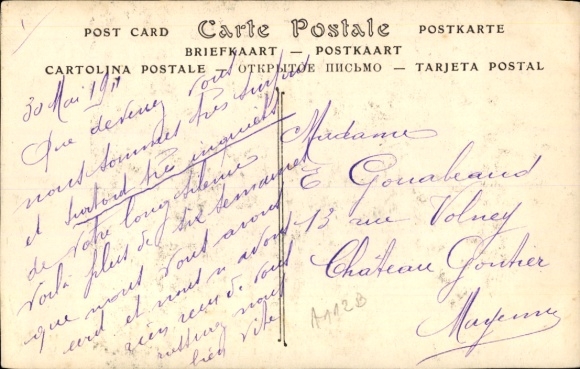 POST CARD Carte Postale POSTKARTE
BRIEFKAART — POSTKAART
CARTOLINA POSTALE — ОТКРЫТОЕ ПИСЬМО — TARJETA POSTAL
30 Mai 1911
Que devenez vous
nous sommes très surpris
et surtout très inquiets
de votre long silence
Voilà plus de six semaines
que nous vous avons
écrit et nous n avons
rien reçu de vous
nous
bien vite
Madame
E
13 rue Volney
Château Gontier
Mayenne
A112B